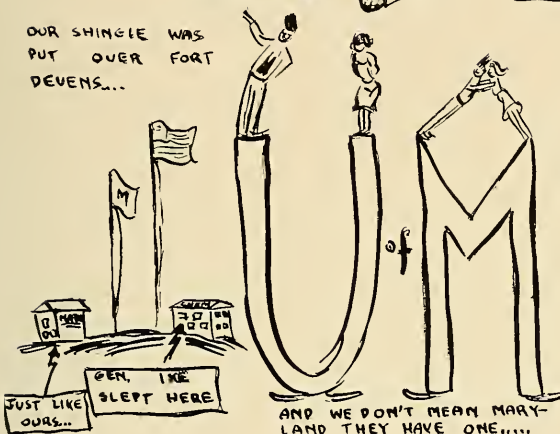 OUR SHINGLE WAS
PUT OVER FORT
DEVENS....
M
U of M
MAIN
CHEM
JUST LIKE
OURS...
GEN. IKE
SLEPT HERE
AND WE DON'T MEAN MARY-
LAND THEY HAVE ONE.....